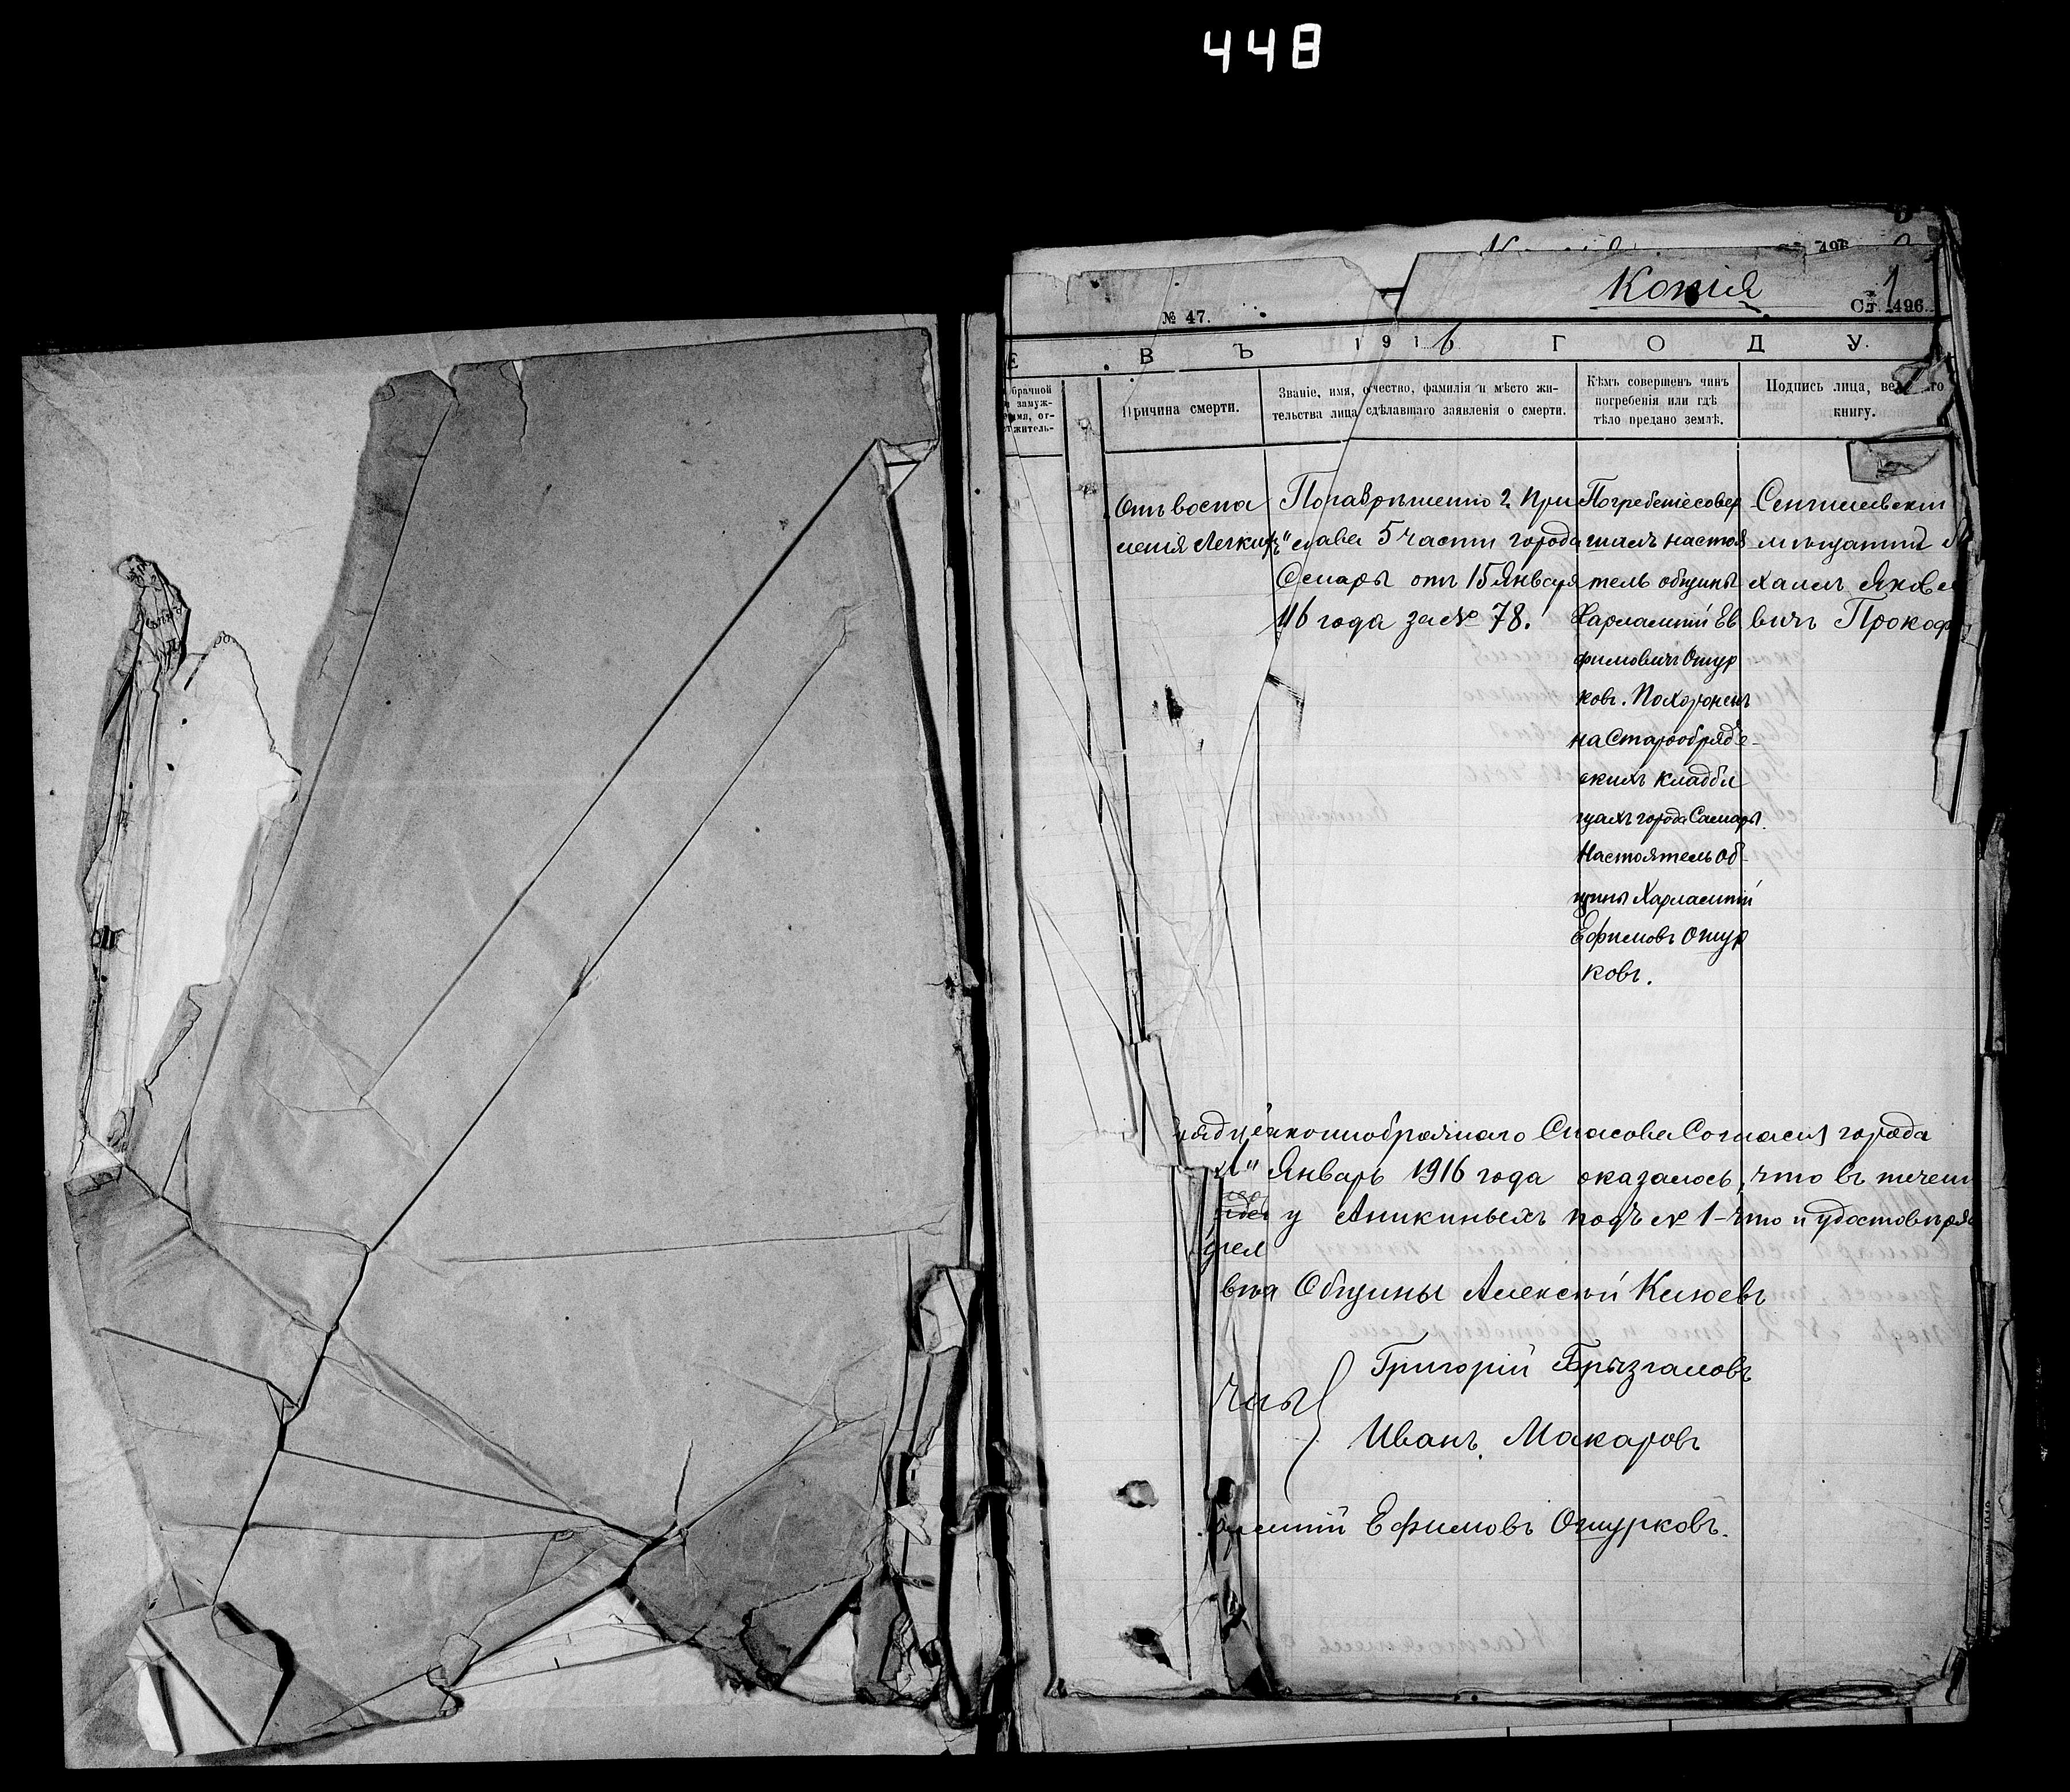 448
Копія
№ 47.
Ст. 496.
Е
В Ъ 1916 Г О Д У.
брачной
замуж-
житель-
Причина смерти.
Званіе, имя, отчество, фамилія и мѣсто жи-
тельства лица, сдѣлавшаго заявленія о смерти.
Кѣмъ совершенъ чинъ
погребенія или гдѣ
тѣло предано землѣ.
Подпись лица, ведущаго
книгу.
Отъ воспа
ленія Легкихъ
По разрѣшенію 2. При
става 5 части города
Самары отъ 15 Января
1916 года за № 78.
Погребеніе совер
шилъ настоя
тель общины
Харлампій Ев
фимовичъ Ошур
ковъ. Похороненъ
на Старообряд
скихъ кладби
щахъ города Самары.
Настоятель Об-
щины Харлампій
Ефимовъ Ошур
ковъ.
мѣщанинъ
Прокоф
Спасова Согласія города
Январь 1916 года оказалось, что въ течені
у Аникиныхъ подъ № 1 - что и удостовѣря
Общины Алексѣй Клюевъ
Григорій Брызгаловъ
Иванъ Макаровъ
Ефимовъ Ошурковъ.